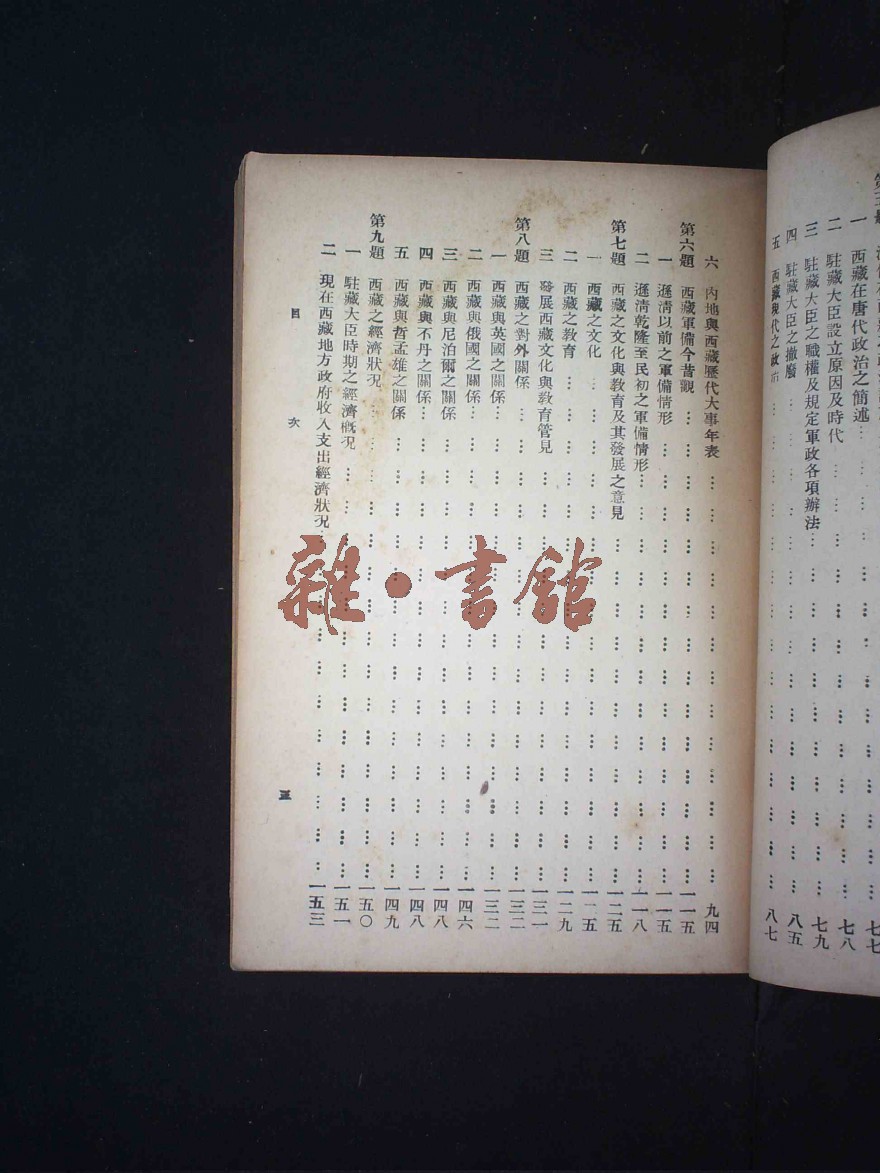 一 西藏在唐代政治之簡述…七七
二 駐藏大臣設立原因及時代…七八
三 駐藏大臣之職權及規定軍政各項辦法…七九
四 駐藏大臣之撤廢…八五
五 西藏現代之政…八七
六 內地與西藏歷代大事年表…九四
第六題 西藏軍備今昔觀…一一五
一 遜清以前之軍備情形…一一五
二 遜清乾隆至民初之軍備情形…一一八
第七題 西藏之文化與教育及其發展之意見…一二五
一 西藏之文化…一二五
二 西藏之教育…一二九
三 發展西藏文化與教育管見…一三一
第八題 西藏之對外關係…一三二
一 西藏與英國之關係…一三二
二 西藏與俄國之關係…一四六
三 西藏與尼泊爾之關係…一四八
四 西藏與不丹之關係…一四八
五 西藏與哲孟雄之關係…一四九
第九題 西藏之經濟狀況…一五〇
一 駐藏大臣時期之經濟概況…一五一
二 現在西藏地方政府收入支出經濟狀況…一五三
目 次 三
雜·書館